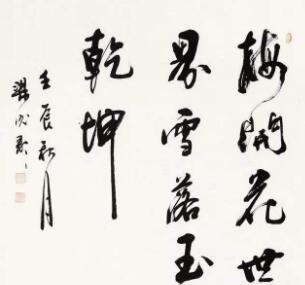 梅開花世
界雪落玉
乾坤
壬辰秋月
梁